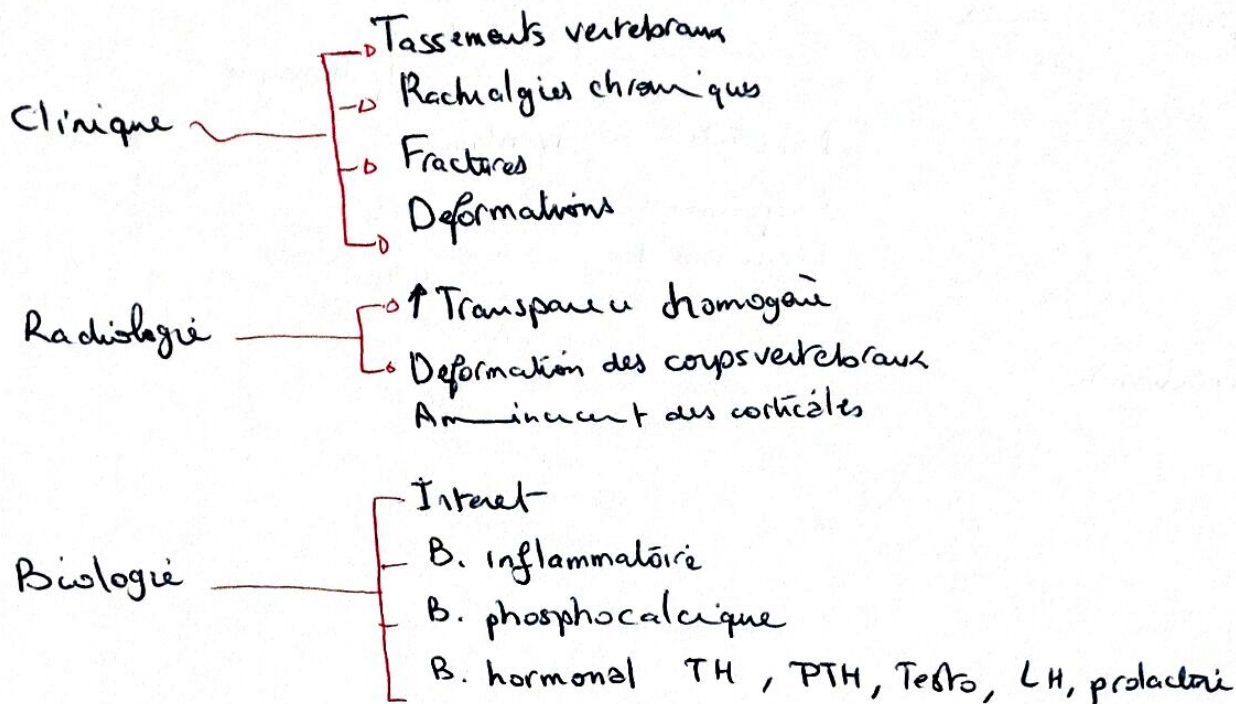 Tassements vertebraux
Rachialgies chroniques
Clinique
Fractures
Deformations
Radiologie
↑ Transparence homogène
Deformation des corps vertebraux
Amincement des corticales
Interet
B. inflammatoire
Biologie
B. phosphocalcique
B. hormonal TH, PTH, Testo, LH, prolactine